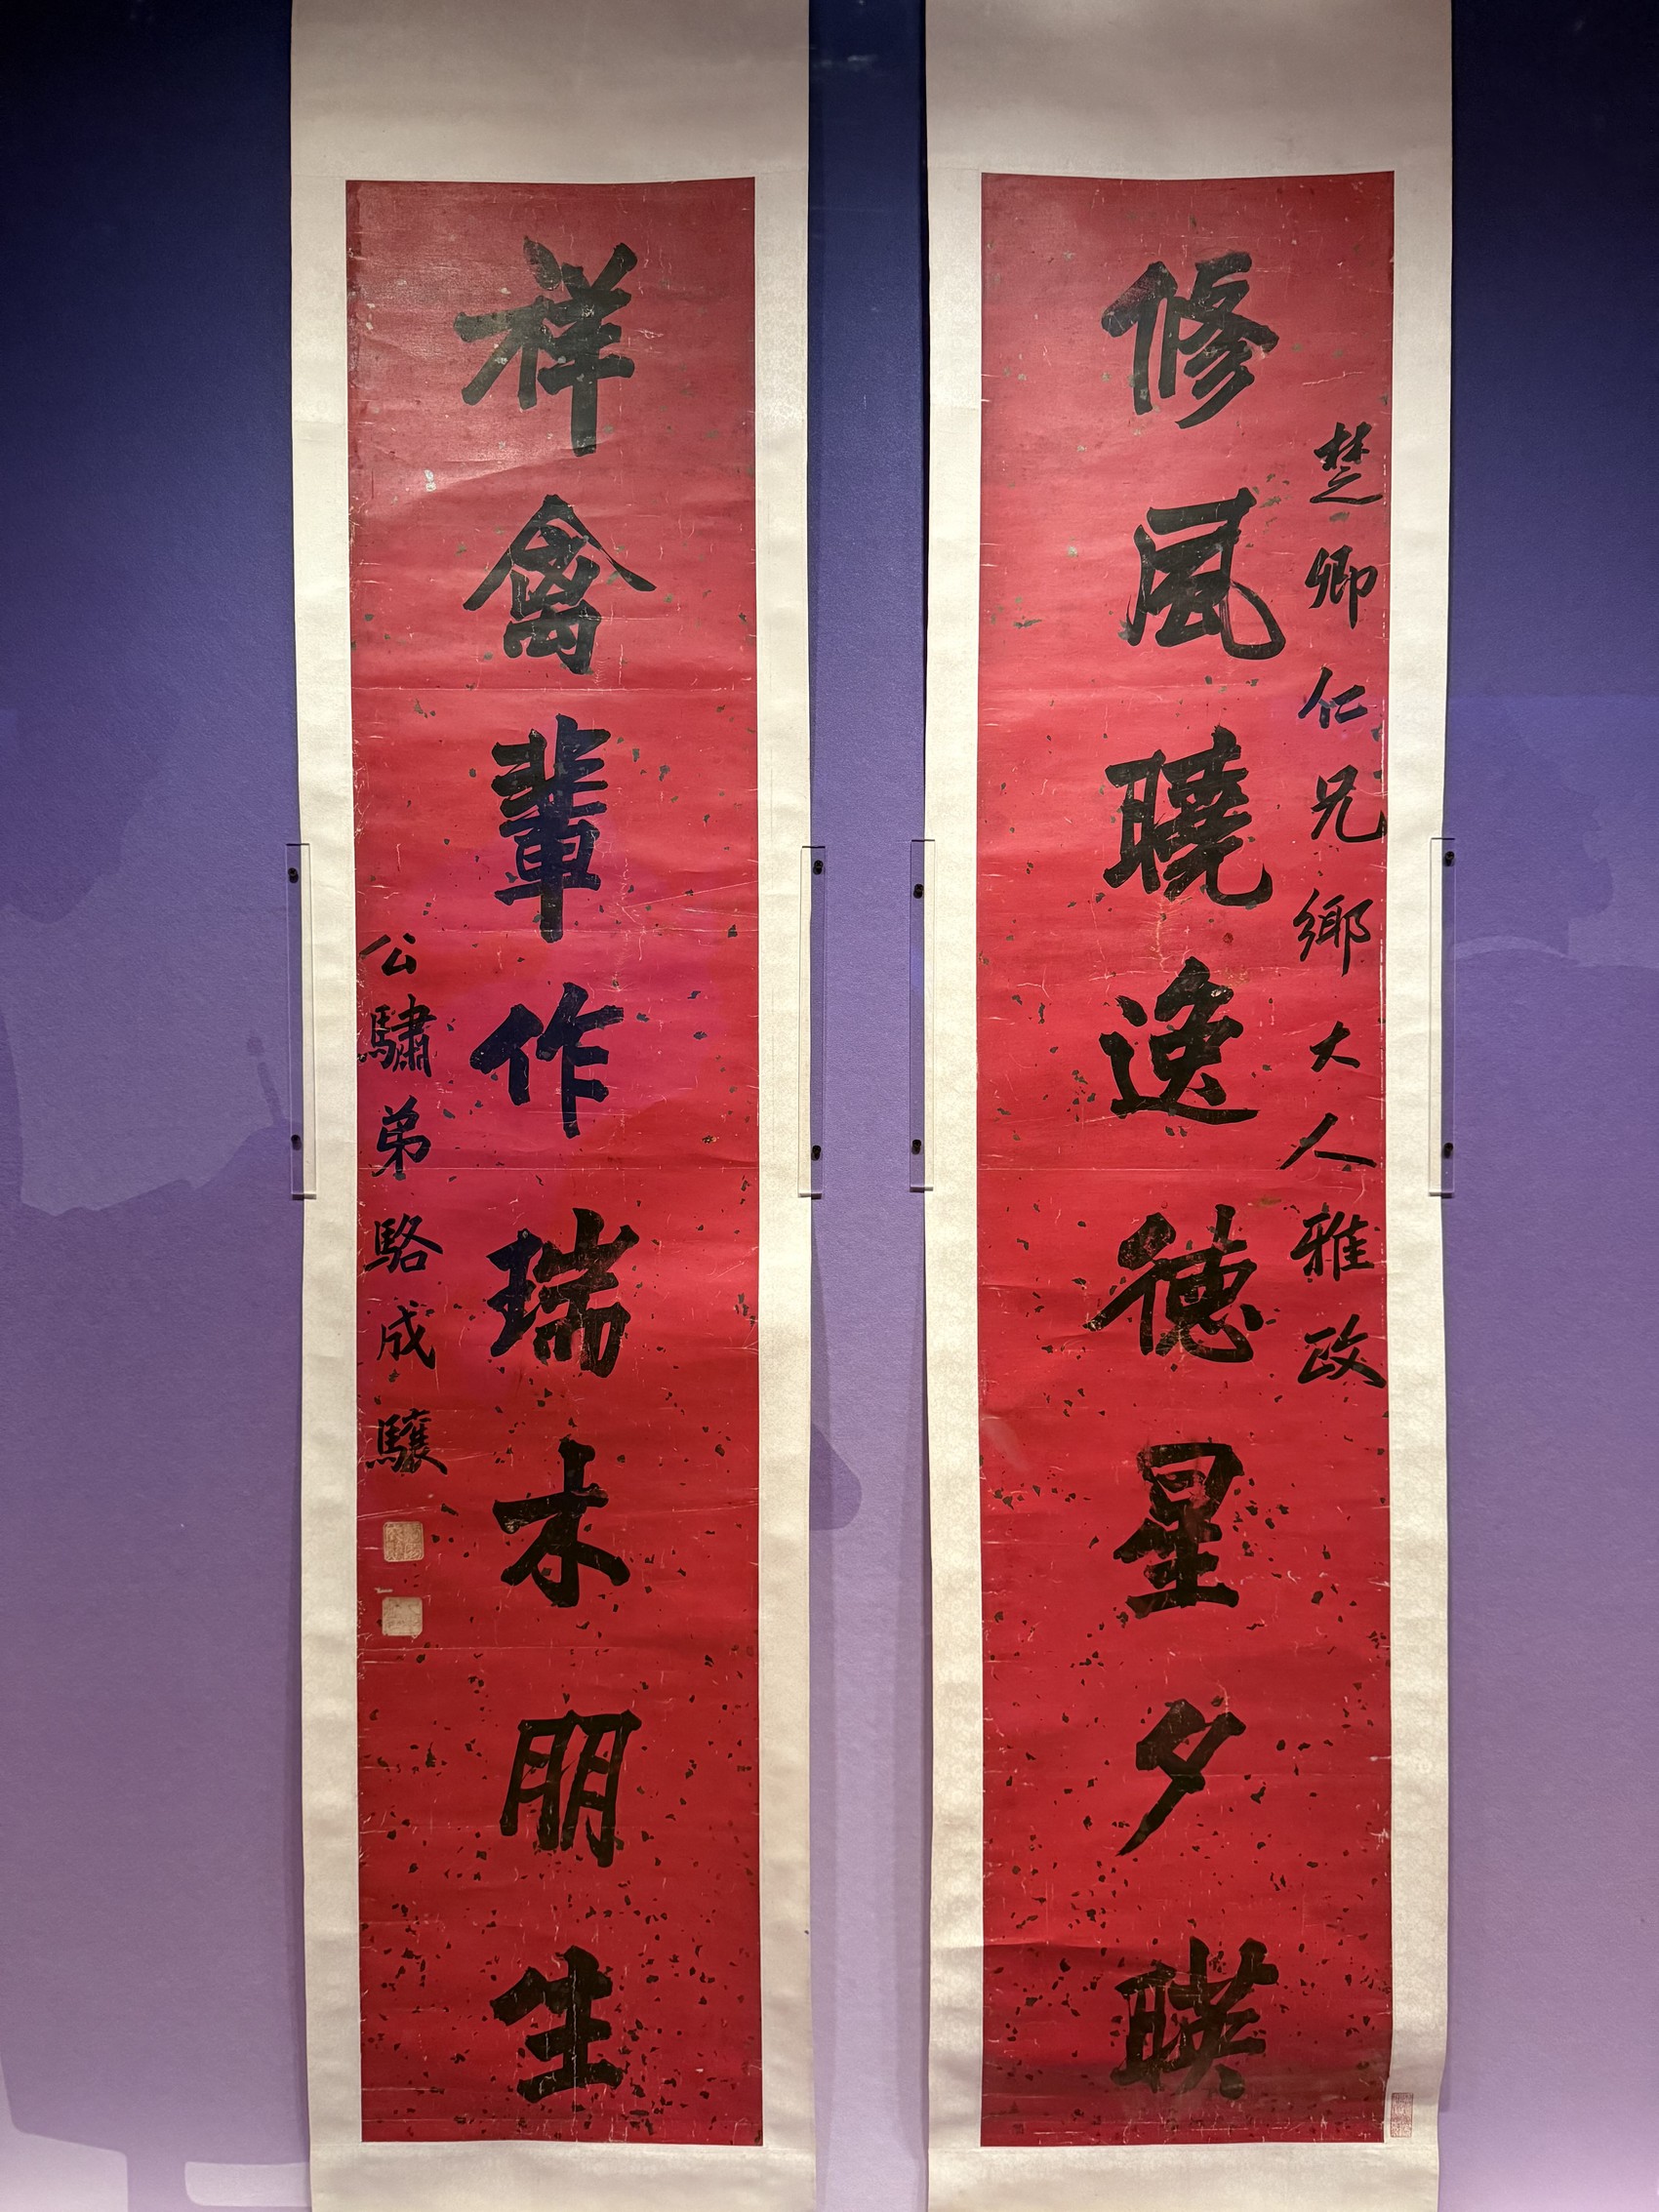 楚卿仁兄鄉大人雅政
修風曉逸德星夕映
祥禽輩作瑞木朋生
公驌弟駱成驤